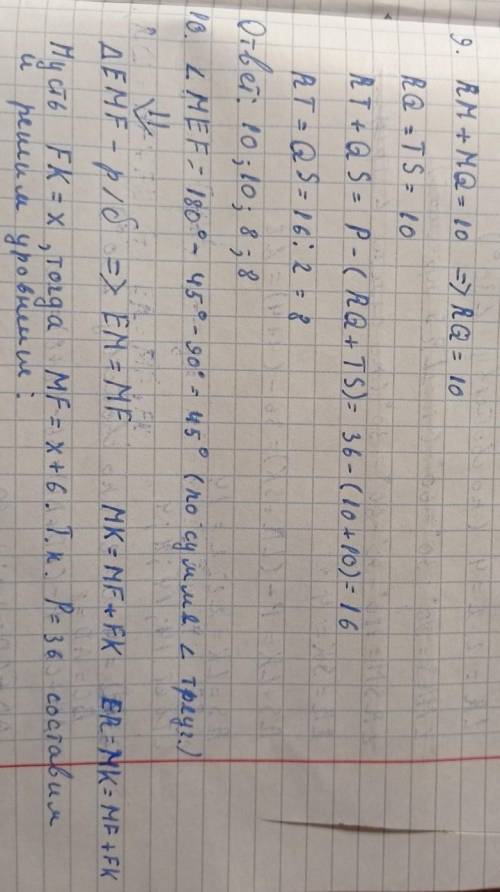 9. RM + MQ = 10 => RQ = 10
RQ = TS = 10
RT + QS = P - (RQ + TS) = 36 - (10 + 10) = 16
RT = QS = 16 : 2 = 8
Ответ: 10; 10; 8; 8
10. ∠MEF = 180° - 45° - 90° = 45° (по сумме ∠ треуг.)
⇓
ΔEMF - р/б => EM = MF MK = MF + FK ER = MK = MF + FK
Пусть FK = x, тогда MF = x + 6. Т.к. P = 36 составим
и решим уровнение: